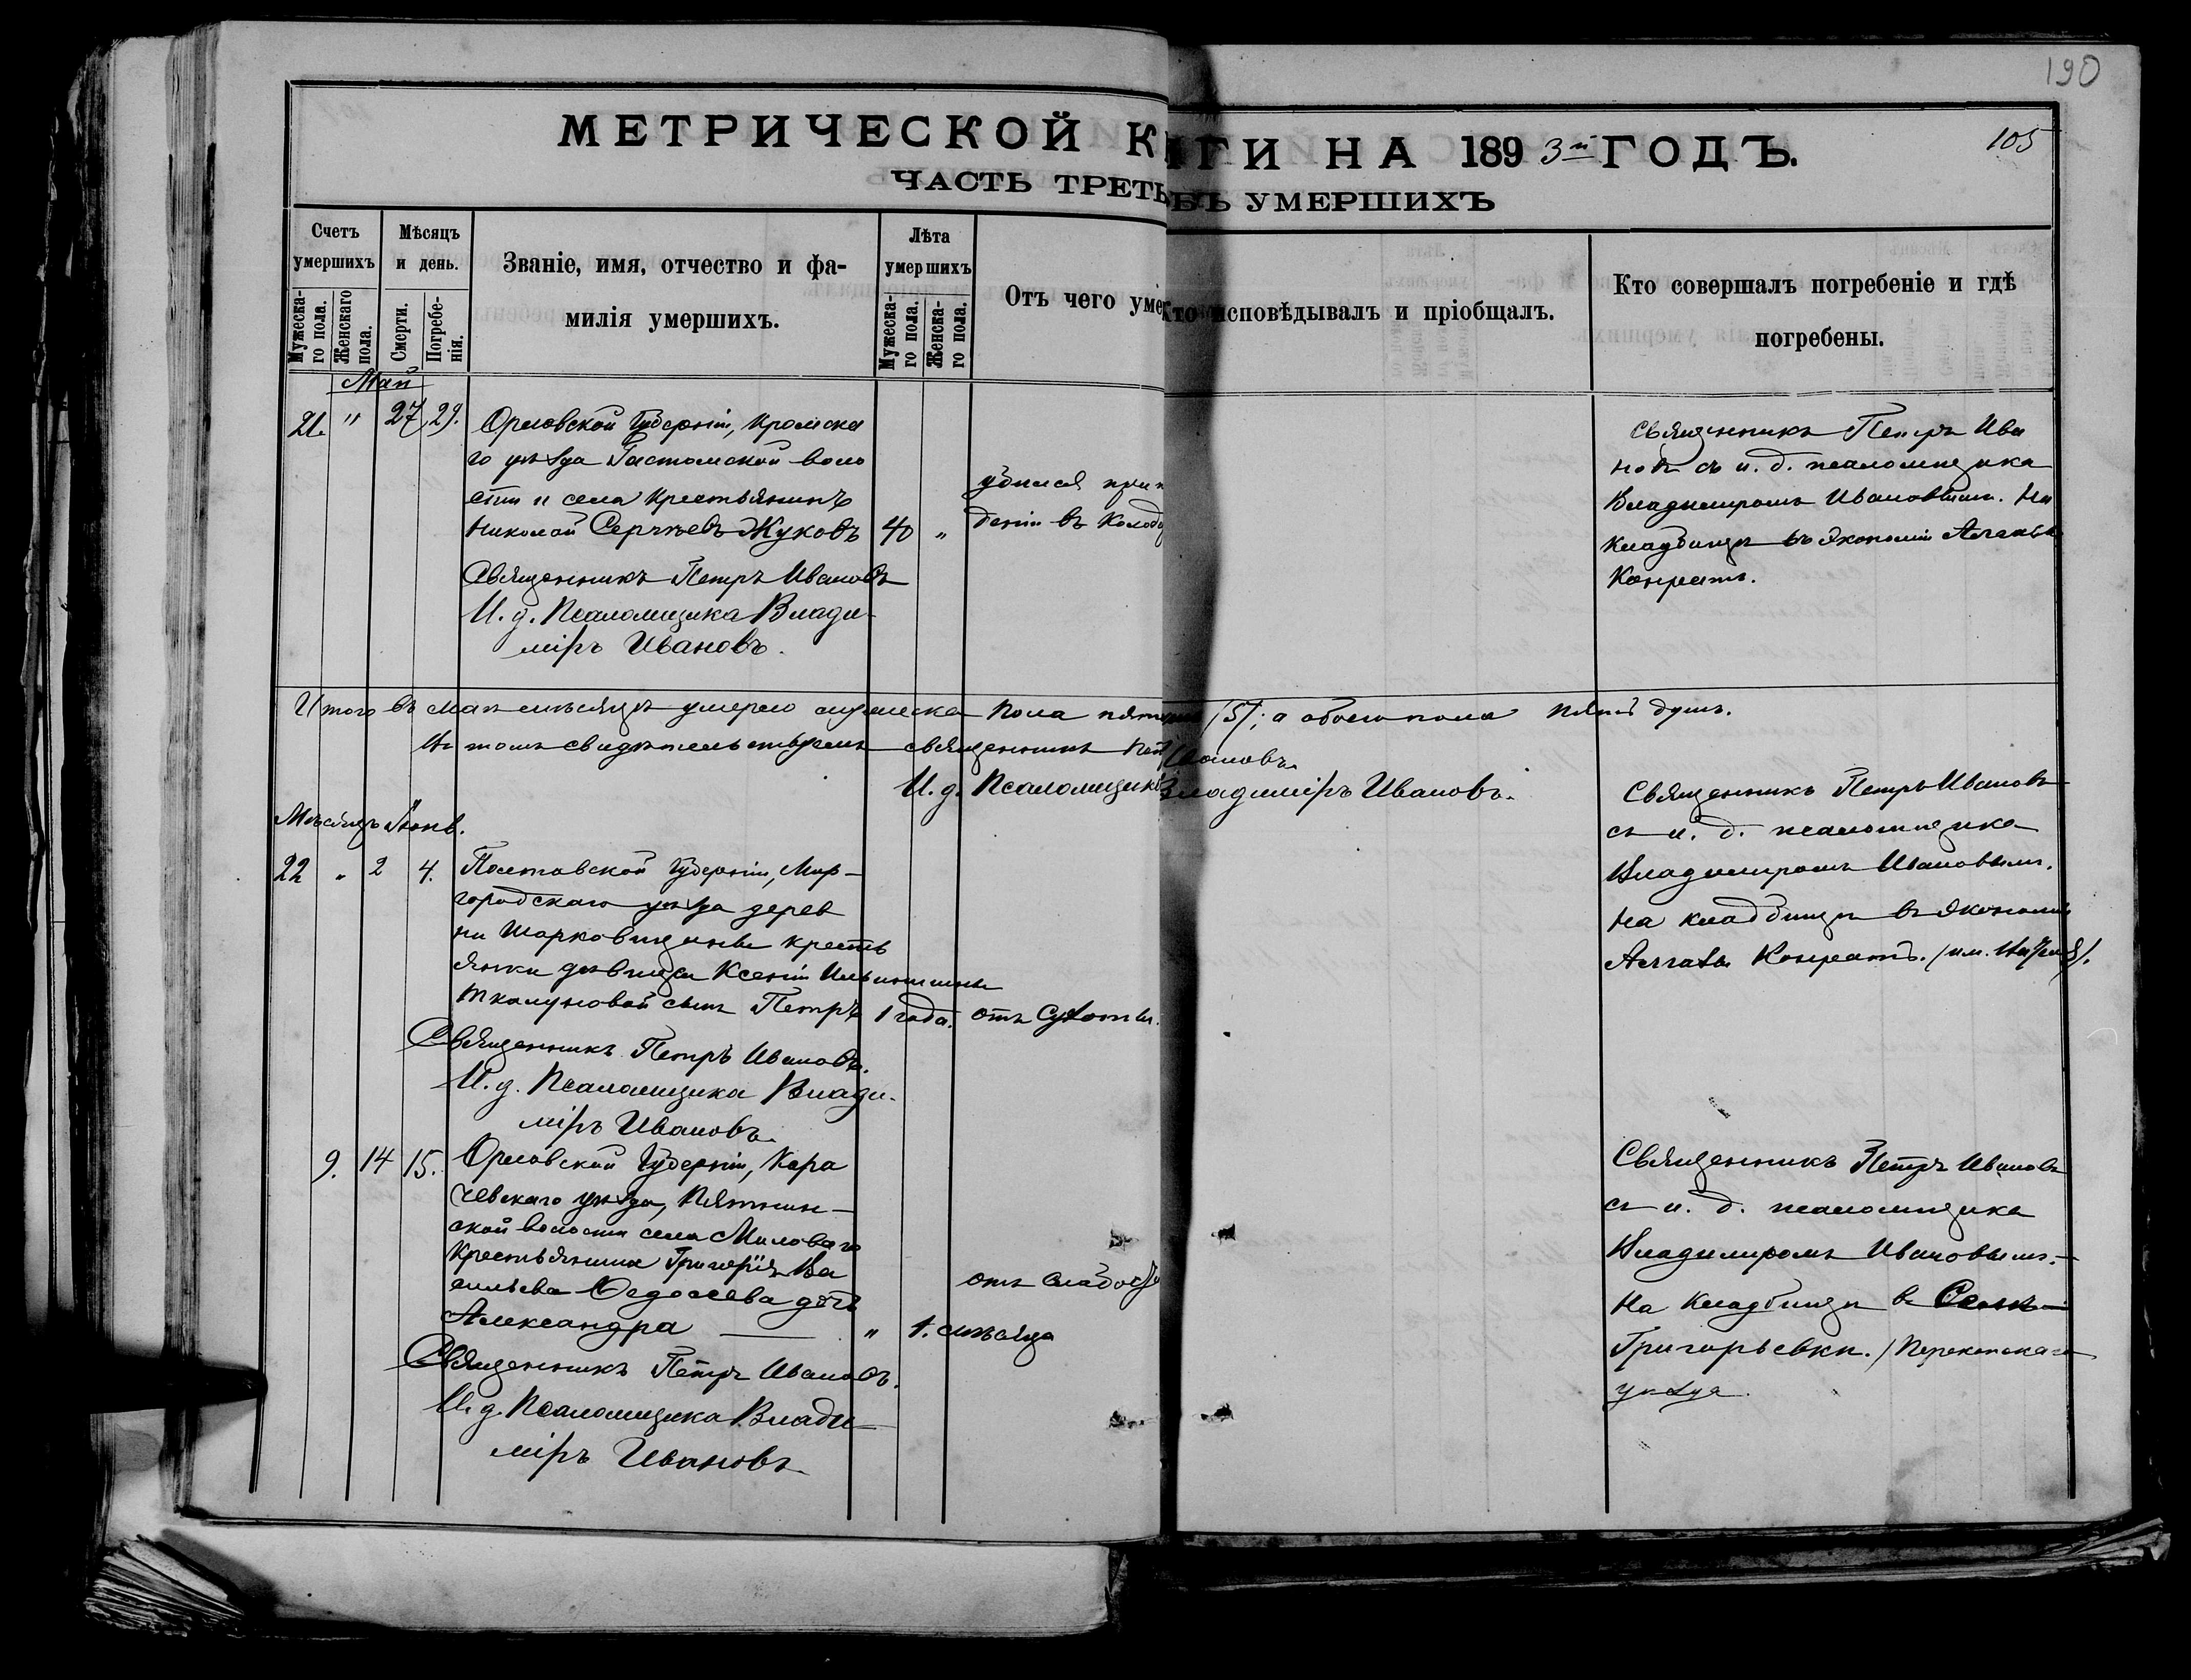 190
МЕТРИЧЕСКОЙ К ИГИ НА 1893й ГОДЪ.
105
ЧАСТЬ ТРЕТЬ УМЕРШИХЪ
Счетъ умершихъ
Мужеска-го пола.
Женскаго пола.
Мѣсяцъ и день.
Смерти.
Погребе-нія.
Званіе, имя, отчество и фа-
милія умершихъ.
Лѣта умершихъ
Мужеска-го пола.
Женска-го пола.
Отъ чего уме
Кто исповѣдывалъ и пріобщалъ.
Кто совершалъ погребеніе и гдѣ
погребены.
Май
21. " 27 29.
Орловской Губерніи, Кромска
го уѣзда Гостомской воло
сти и села крестьянинъ
Николай Сергѣевъ Жуковъ 40 "
Священникъ Петръ Ивановъ
И. д. Псаломщика Влади-
міръ Ивановъ.
убился при п
деніи въ колод
Священникъ Петръ Ива
новъ съ и. д. псаломщика
Владимиромъ Ивановымъ. На
кладбищѣ въ экономіи
Конратъ.
Итого въ маѣ мѣсяцѣ умерло мужеска пола пятеро /5/; а обоего пола пять душъ.
Въ томъ свидѣтельствуемъ священникъ Пет Ивановъ.
И. д. Псаломщика Владиміръ Ивановъ.
Мѣсяцъ Іюнь.
22 " 2 4.
Полтавской Губерніи, Мир-
городскаго уѣзда дерев
ни Шарковщины кресть
янки дѣвицы Ксеніи Ильиничны
Ткалуновой сынъ Петръ 1 года. отъ сухотъ.
Священникъ Петръ Ивановъ.
И. д. Псаломщика Влади-
міръ Ивановъ.
Священникъ Петръ Ивановъ
съ и. д. псаломщика
Владимиромъ Ивановымъ.
На кладбищѣ въ экономіи
Конратъ.
9. 14 15.
Орловской Губерніи, Кара
чевскаго уѣзда, Пятнин-
ской волости села Миловаго
крестьянина Григорія Ва
сильева Федосеева дочь
Александра " 1. мѣсяца
отъ слабос
Священникъ Петръ Ивановъ.
И. д. Псаломщика Влади-
міръ Ивановъ
Священникъ Петръ Ивановъ
съ и. д. псаломщика
Владимиромъ Ивановымъ.
На кладбищѣ въ Селѣ
Григорьевки. /Перекопскаго
уѣзда.